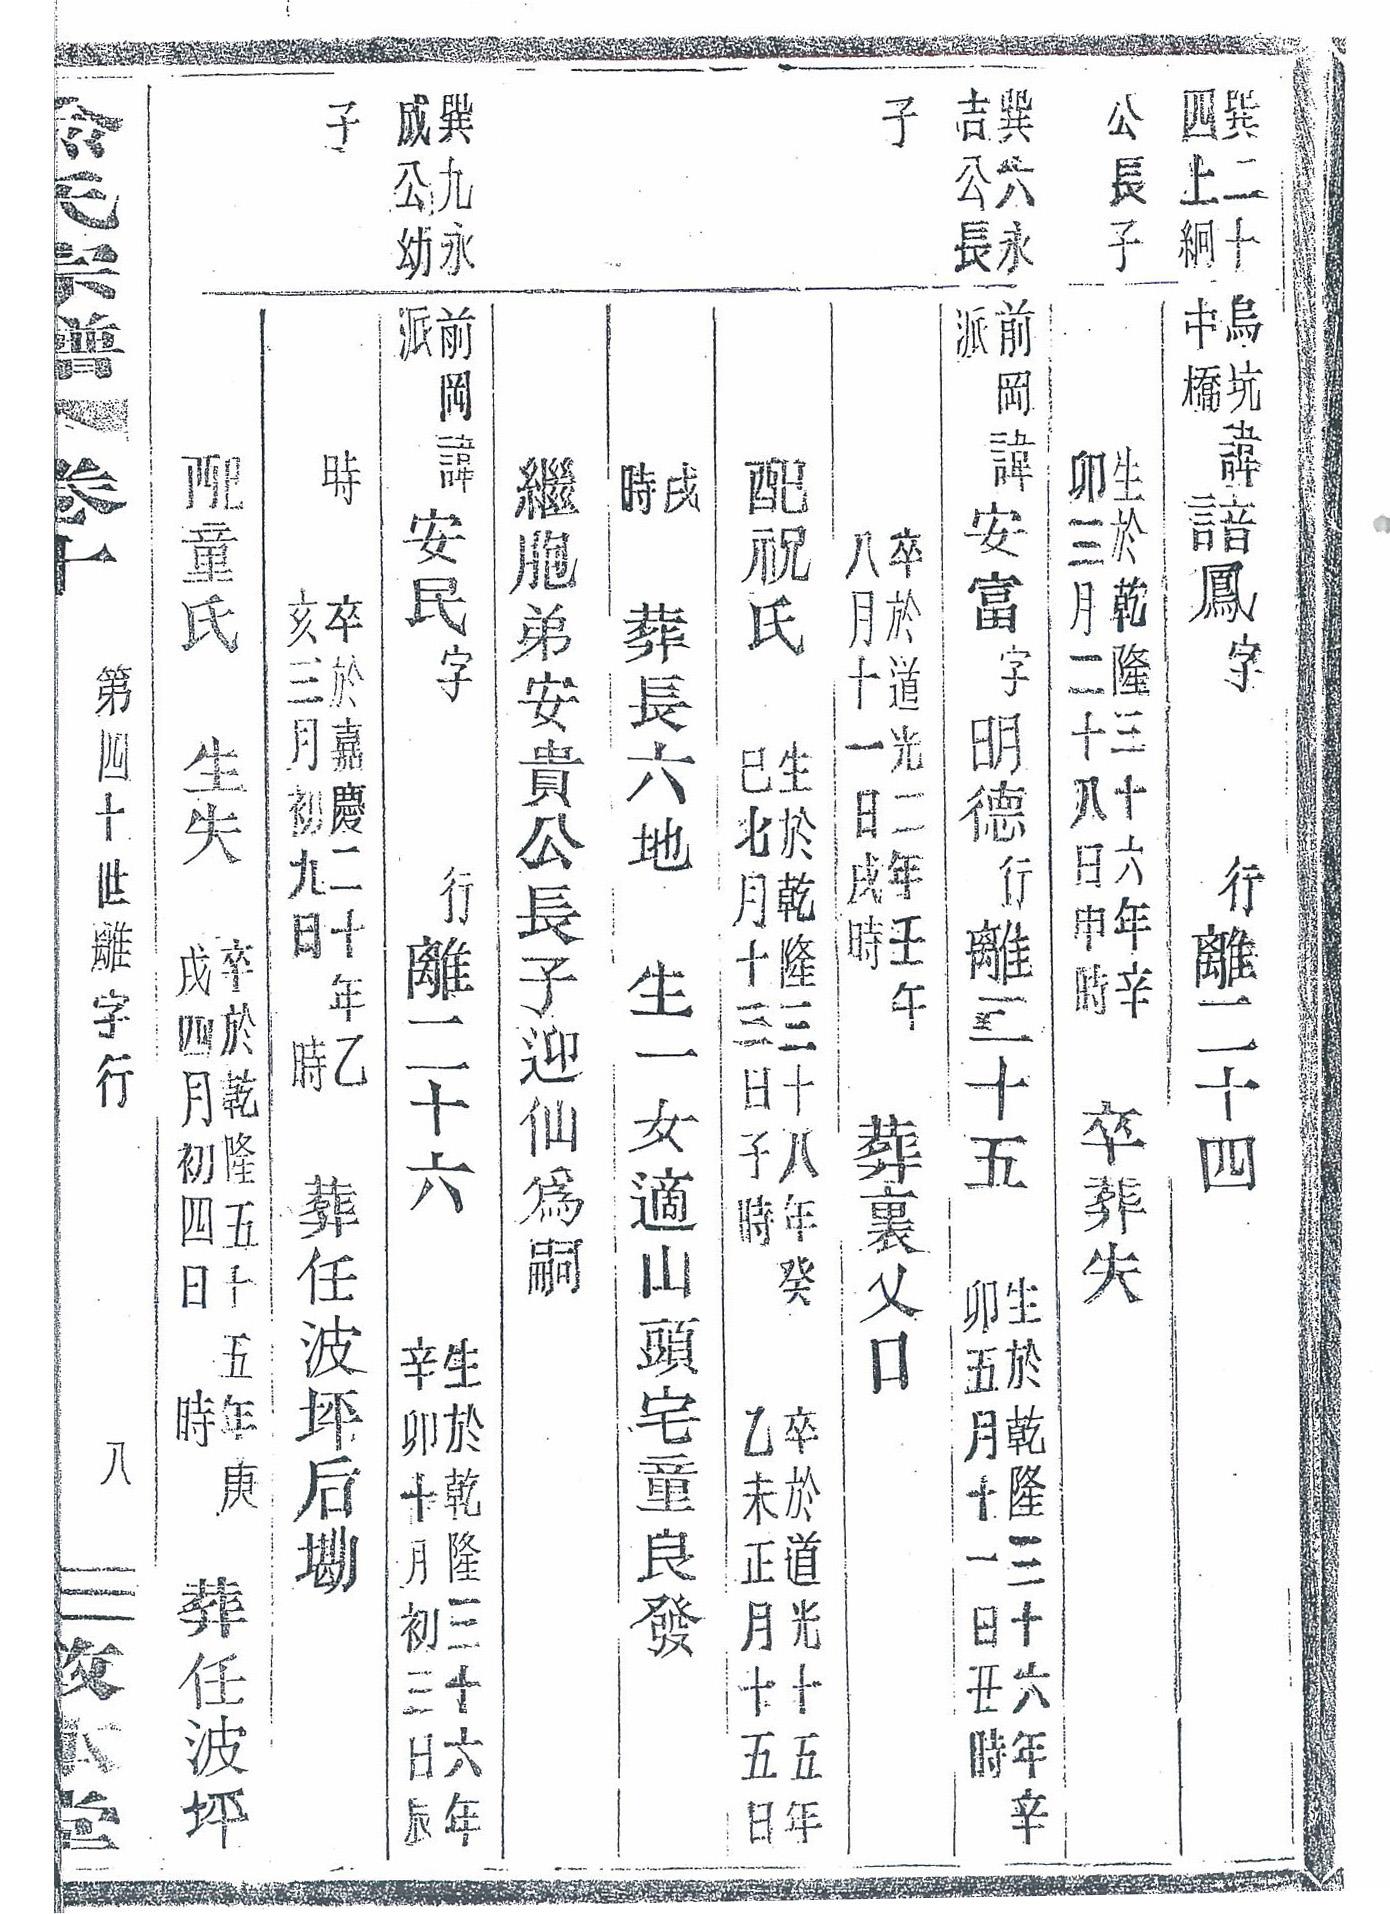 巽二十
四上絅
烏坑
中橋
諱諳鳳字
行離二十四
公長子
生於乾隆三十六年辛
卯三月二十八日申時
卒葬失
巽六永
吉公長
前岡
派
諱安富字明德行離二十五
生於乾隆三十六年辛
卯五月十一日丑時
子
卒於道光二年壬午
八月十一日戌時
葬裏乂口
配祝氏
生於乾隆三十八年癸
巳北月十三日子時
卒於道光十五年
乙未正月十五日
戌
時
葬長六地 生一女適山頭宅童良發
繼胞弟安貴公長子迎仙為嗣
巽九永
成公幼
前岡
派
諱安民字 行離二十六
生於乾隆三十六年
辛卯十月初三日辰
子
時
卒於嘉慶二十年乙
亥三月初九日 時
葬任波坪后墈
配童氏 生失
卒於乾隆五十五年庚
戌四月初四日 時
葬任波坪
氏宗譜 卷十
第四十世離字行
八
堂